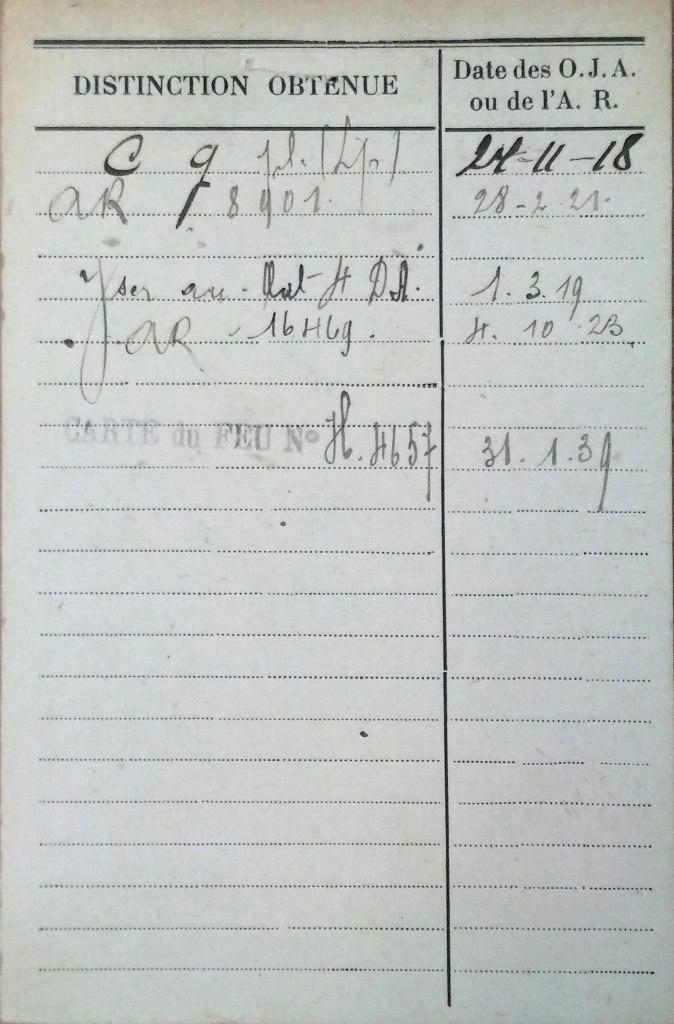 DISTINCTION OBTENUE
Date des O. J. A.
ou de l'A. R.
C g pl.
24-11-18
AR 8901.
28-2 21.
Yser au. 4 D.A.
1. 3. 19
AR - 16469.
4. 10 . 23.
CARTE du FEU N° H. 4657
31. 1. 39